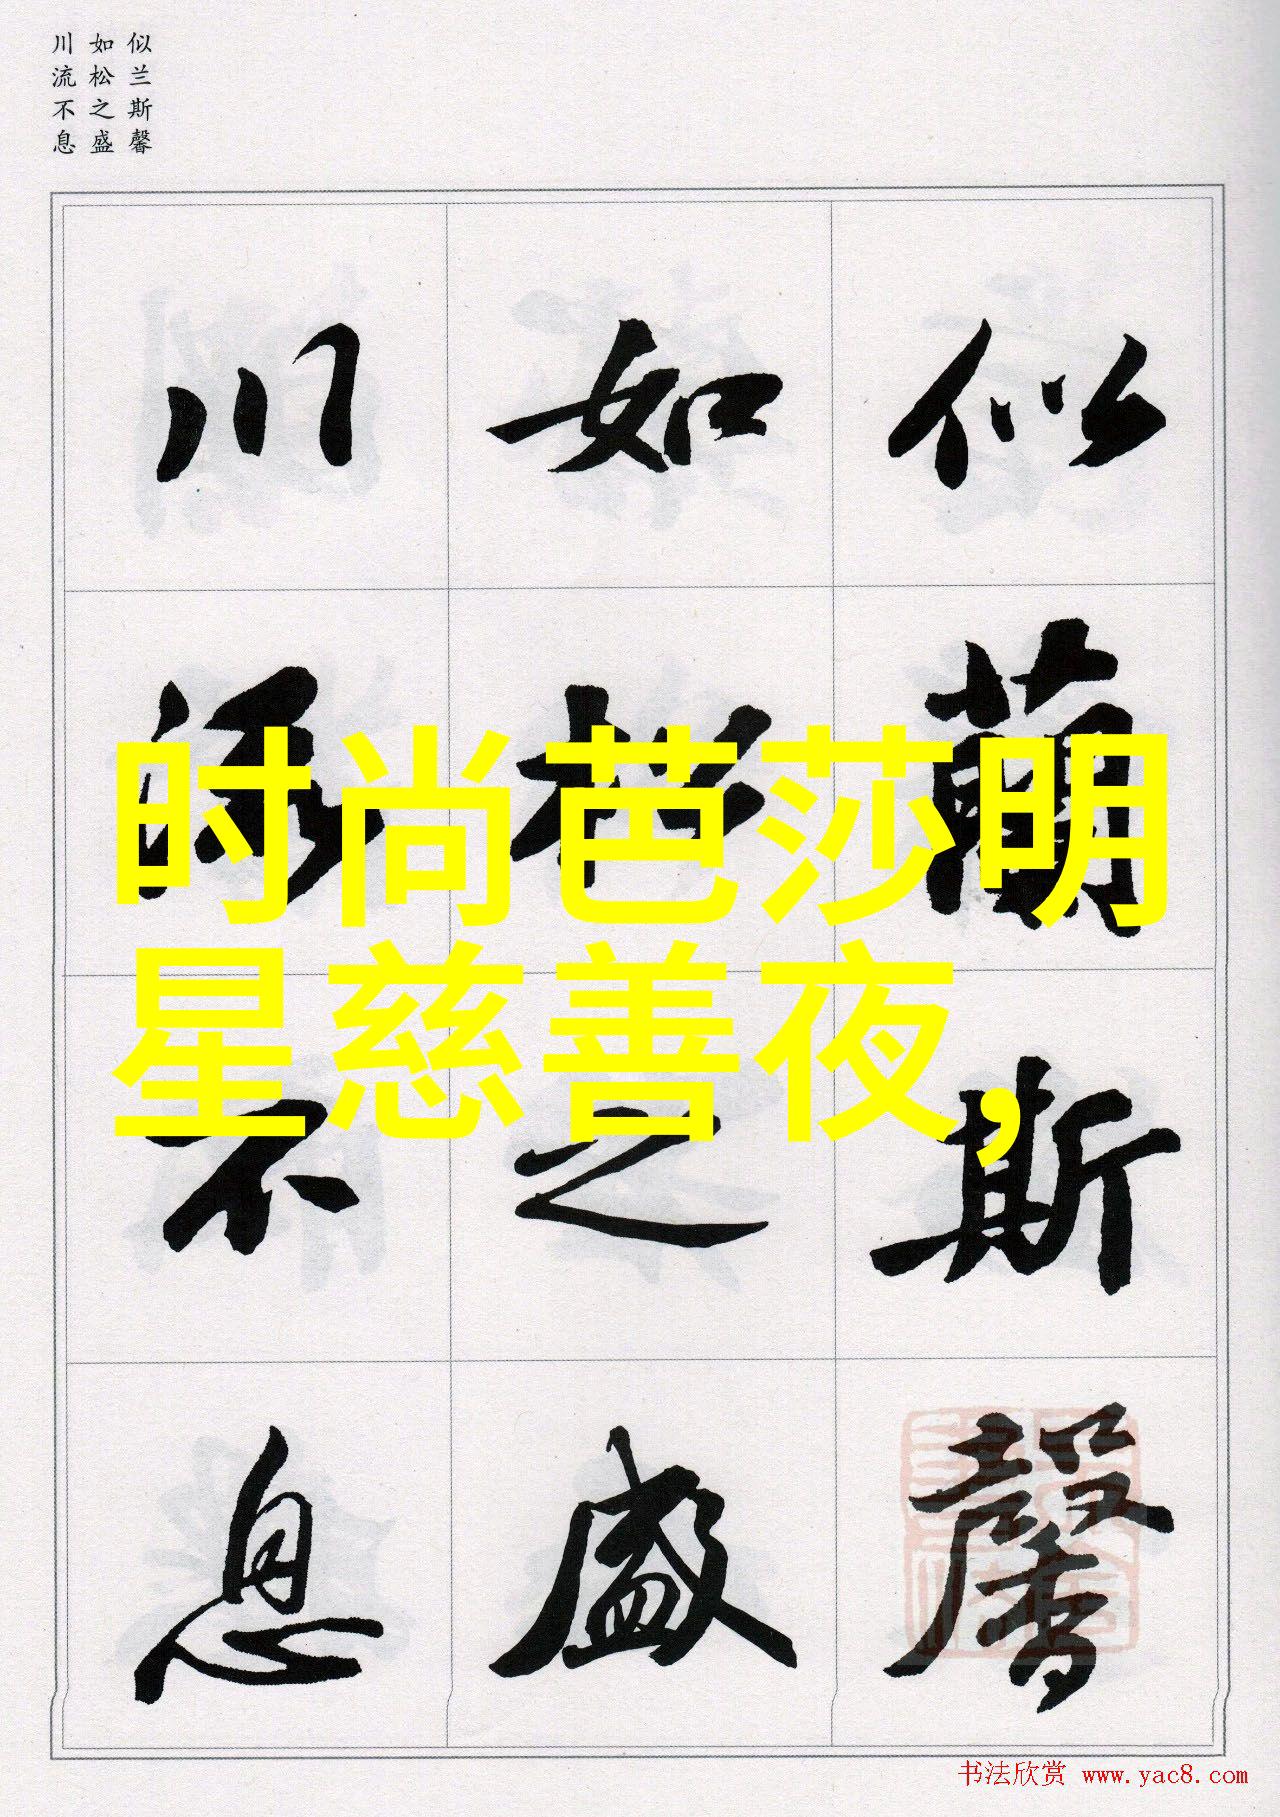 似兰斯馨
如松之盛
川流不息
似蘭斯馨
如松之盛
川流不息
时尚芭莎明
星慈善夜,
书法欣赏 www.yac8.com